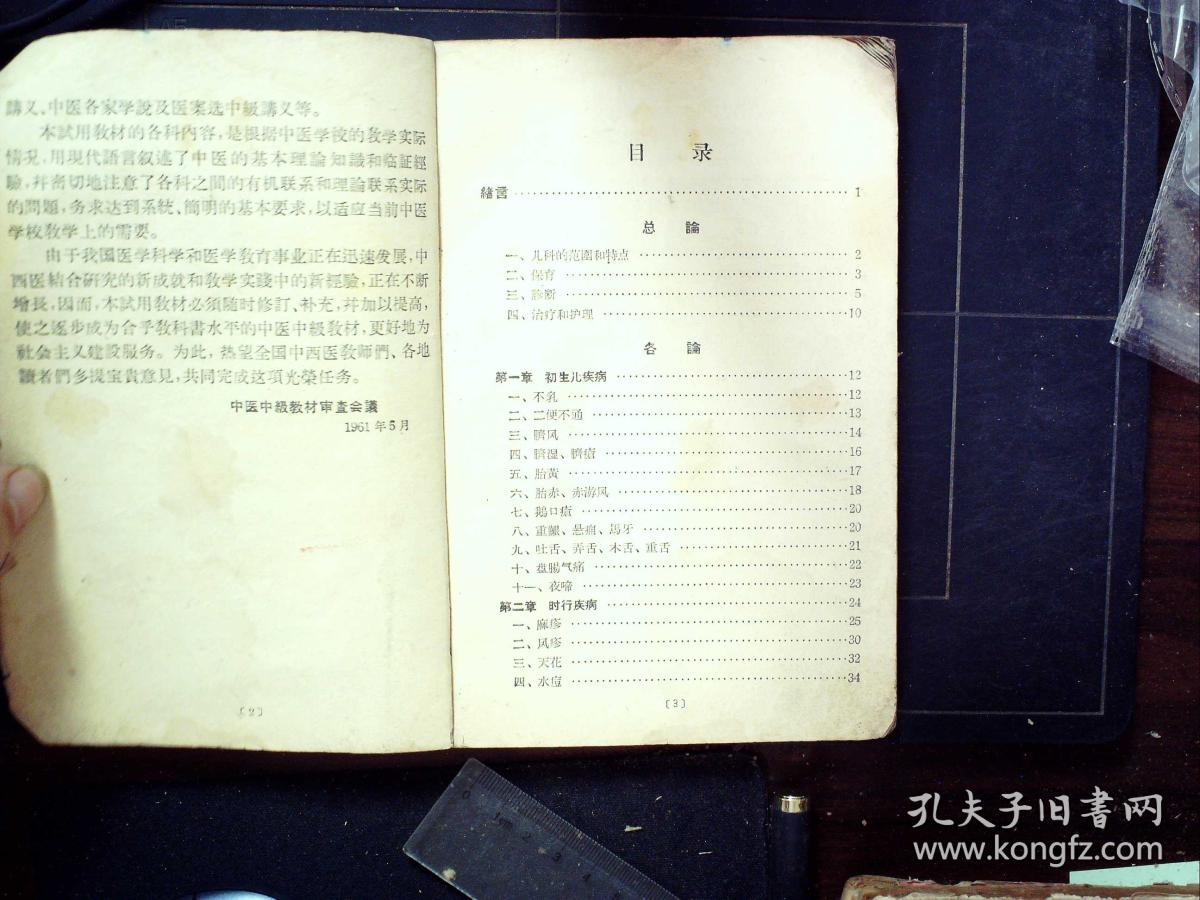 講义、中医各家学說及医案选中級講义等。
本試用教材的各科內容，是根据中医学校的教学实际
情况，用現代語言叙述了中医的基本理論知識和临証經
驗，幷密切地注意了各科之間的有机联系和理論联系实际
的問題，务求达到系統、簡明的基本要求，以适应当前中医
学校教学上的需要。
由于我国医学科学和医学教育事业正在迅速发展，中
西医結合研究的新成就和教学实践中的新經驗，正在不断
增长，因而，本試用教材必須随时修訂、补充，幷加以提高，
使之逐步成为合乎教科書水平的中医中級教材，更好地为
社会主义建設服务。为此，热望全国中西医教师們、各地
讀者們多提宝貴意見，共同完成这項光榮任务。
中医中級教材审查会議
1961年5月
〔2〕
目 录
緒言 1
总 論
一、儿科的范圍和特点 2
二、保育 3
三、診断 5
四、治疗和护理 10
各 論
第一章 初生儿疾病 12
一、不乳 12
二、二便不通 13
三、臍风 14
四、臍湿、臍瘡 16
五、胎黄 17
六、胎赤、赤游风 18
七、鵝口瘡 20
八、重齦、悬痈、馬牙 20
九、吐舌、弄舌、木舌、重舌 21
十、盘腸气痛 22
十一、夜啼 23
第二章 时行疾病 24
一、麻疹 25
二、风疹 30
三、天花 32
四、水痘 34
〔3〕
0 1cm 2 3 4
孔夫子旧書网
www.kongfz.com